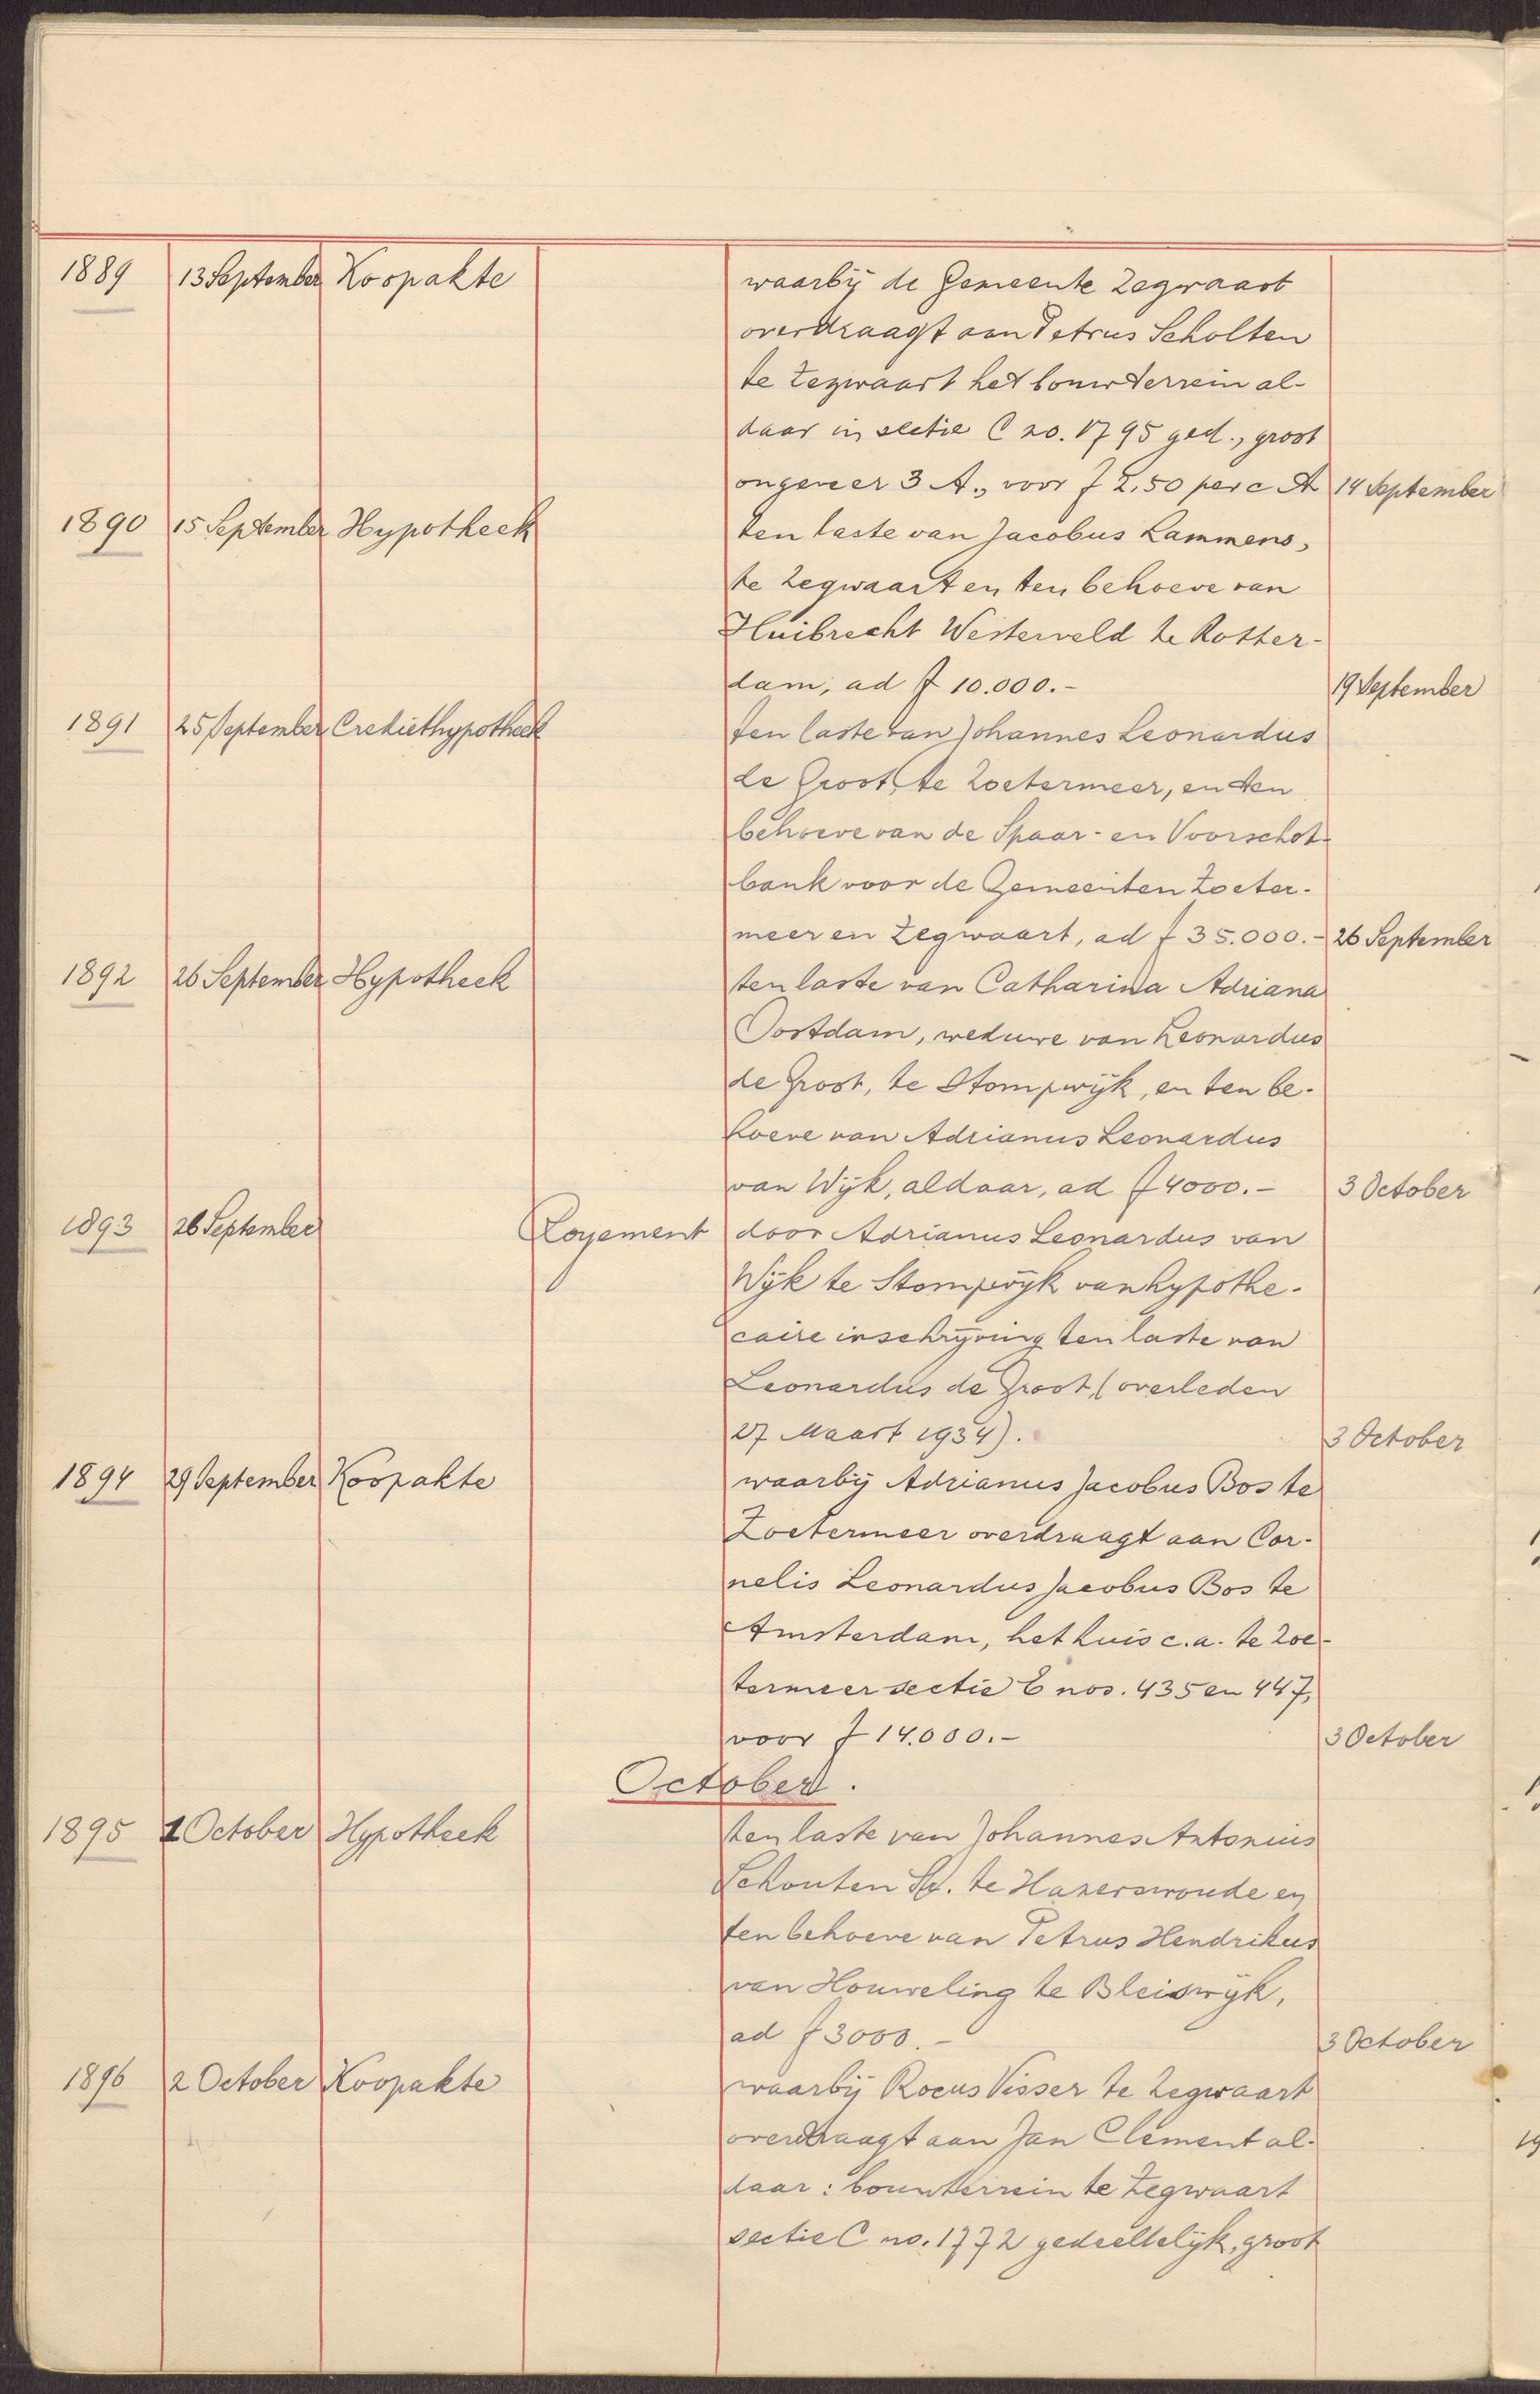 1889 13 September Koopakte waarbij de Gemeente Zegwaart
overdraagt aan Petrus Scholten
te Zegwaart het bouwterrein al-
daar in sectie C no. 1795 ged., groot
ongeveer 3 A., voor f 2,50 per c A 14 September
1890 15 September Hypotheek ten laste van Jacobus Lammens,
te Zegwaart en ten behoeve van
Huibrecht Westerveld te Rotter-
dam, ad f 10.000.- 19 September
1891 25 September Crediethypotheek ten laste van Johannes Leonardus
de Groot, te Zoetermeer, en ten
behoeve van de Spaar- en Voorschot-
bank voor de Gemeenten Zoeter-
meer en Zegwaart, ad f 35.000.- 26 September
1892 26 September Hypotheek ten laste van Catharina Adriana
Oostdam, weduwe van Leonardus
de Groot, te Stompwijk, en ten be-
hoeve van Adrianus Leonardus
van Wijk, aldaar, ad f 4000.- 3 October
1893 26 September Royement door Adrianus Leonardus van
Wijk te Stompwijk van hypothe-
caire inschrijving ten laste van
Leonardus de Groot, (overleden
27 Maart 1934). 3 October
1894 29 September Koopakte waarbij Adrianus Jacobus Bos te
Zoetermeer overdraagt aan Cor-
nelis Leonardus Jacobus Bos te
Amsterdam, het huis c.a. te Zoe-
termeer sectie C nos. 435 en 447,
voor f 14.000.- 3 October
October.
1895 1 October Hypotheek ten laste van Johannes Antonius
Schouten Sr. te Hazerswoude en
ten behoeve van Petrus Hendrikus
van Houweling te Bleiswijk,
ad f 3000.- 3 October
1896 2 October Koopakte waarbij Rocus Visser te Zegwaart
overdraagt aan Jan Clement al-
daar: bouwterrein te Zegwaart
sectie C no. 1772 gedeeltelijk, groot